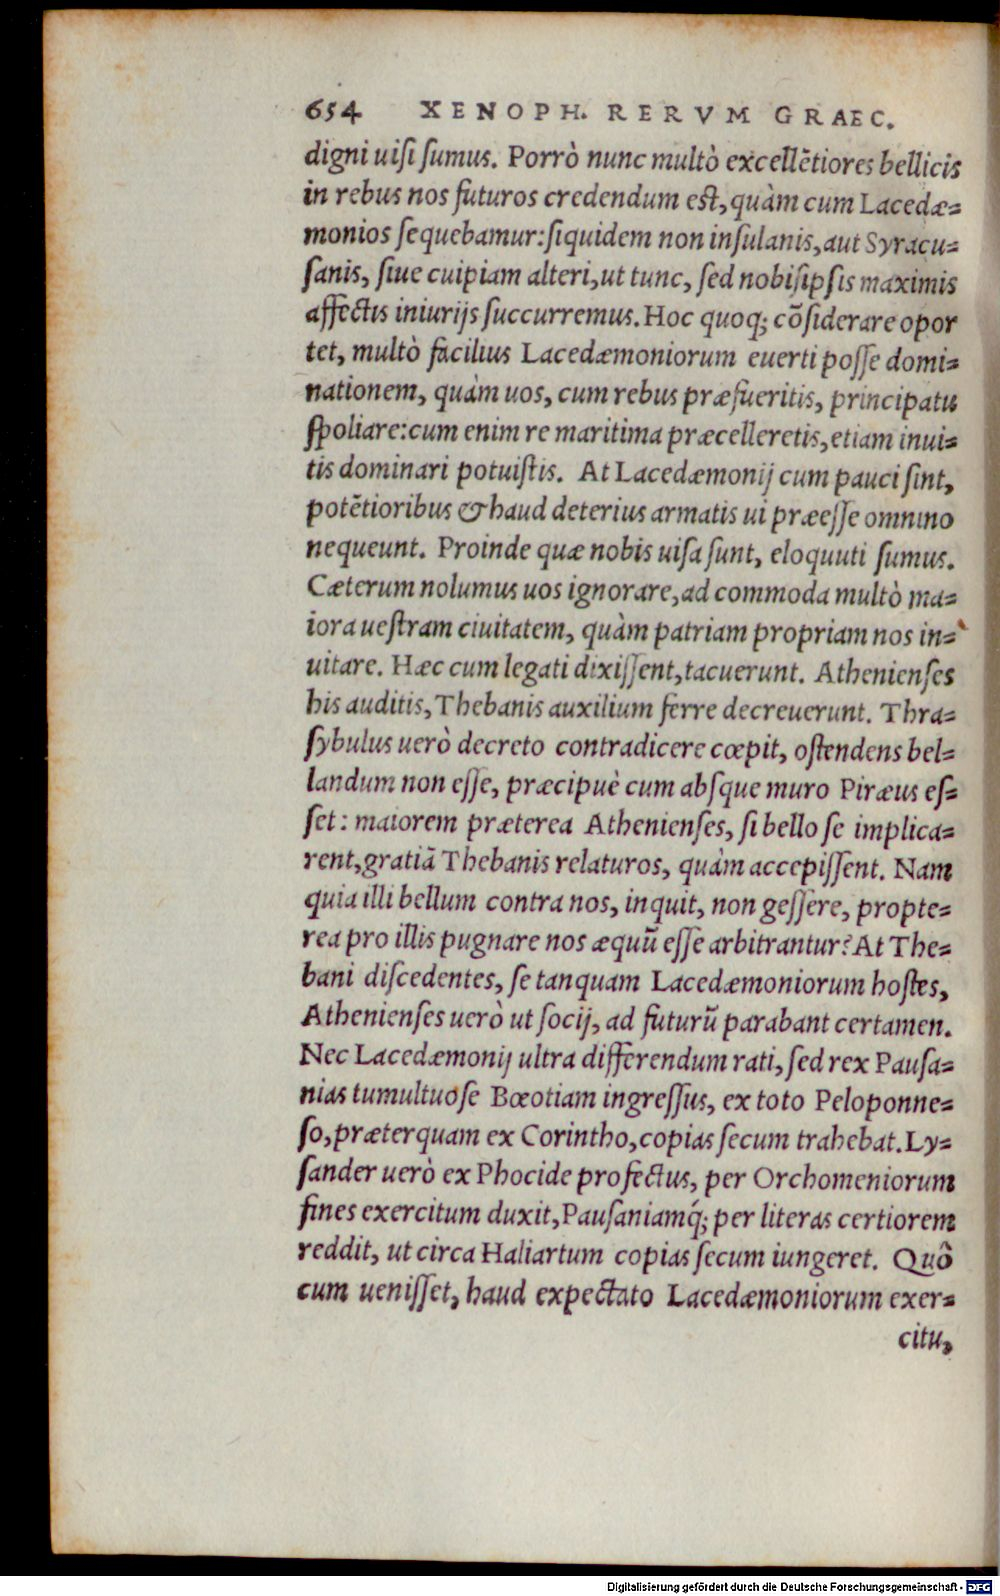 654 XENOPH. RERVM GRAEC.
digni uisi sumus. Porrò nunc multò excellẽtiores bellicis
in rebus nos futuros credendum est, quàm cum Lacedæ=
monios sequebamur: siquidem non insulanis, aut Syracu=
sanis, siue cuipiam alteri, ut tunc, sed nobisipsis maximis
affectis iniurijs succurremus. Hoc quoq; cõsiderare opor
tet, multò facilius Lacedæmoniorum euerti posse domi=
nationem, quàm uos, cum rebus præfueritis, principatu
spoliare: cum enim re maritima præcelleretis, etiam inui=
tis dominari potuistis. At Lacedæmonij cum pauci sint,
potẽtioribus & haud deterius armatis ui præesse omnino
nequeunt. Proinde quæ nobis uisa sunt, eloquuti sumus.
Cæterum nolumus uos ignorare, ad commoda multò ma=
iora uestram ciuitatem, quàm patriam propriam nos in=
uitare. Hæc cum legati dixissent, tacuerunt. Athenienses
his auditis, Thebanis auxilium ferre decreuerunt. Thra=
sybulus uerò decreto contradicere cœpit, ostendens bel=
landum non esse, præcipuè cum absque muro Piræus es=
set: maiorem præterea Athenienses, si bello se implica=
rent, gratiã Thebanis relaturos, quàm accepissent. Nam
quia illi bellum contra nos, inquit, non gessere, propte=
rea pro illis pugnare nos æquũ esse arbitrantur? At The=
bani discedentes, se tanquam Lacedæmoniorum hostes,
Athenienses uerò ut socij, ad futurũ parabant certamen.
Nec Lacedæmonij ultra differendum rati, sed rex Pausa=
nias tumultuose Bœotiam ingressus, ex toto Peloponne=
so, præterquam ex Corintho, copias secum trahebat. Ly=
sander uerò ex Phocide profectus, per Orchomeniorum
fines exercitum duxit, Pausaniamq́; per literas certiorem
reddit, ut circa Haliartum copias secum iungeret. Quô
cum uenisset, haud expectato Lacedæmoniorum exer=
citu,
Digitalisierung gefördert durch die Deutsche Forschungsgemeinschaft - DFG